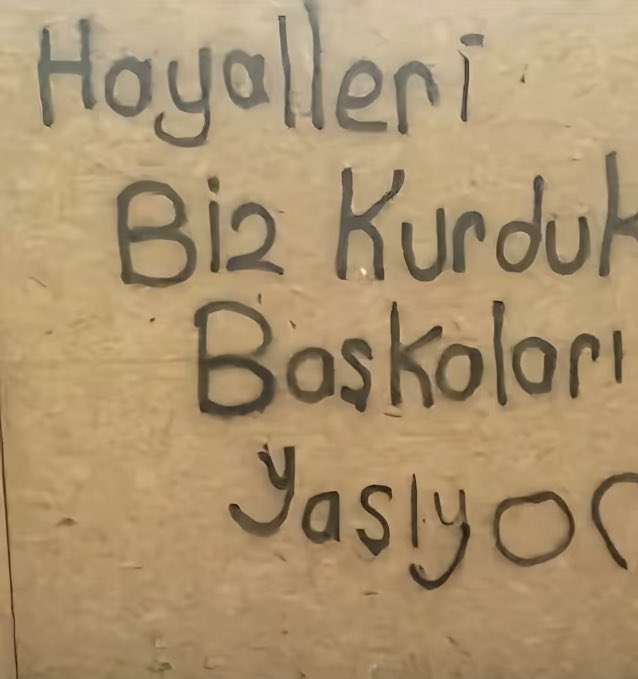 Hayalleri
Biz Kurduk
Baskaları
Yasıyor